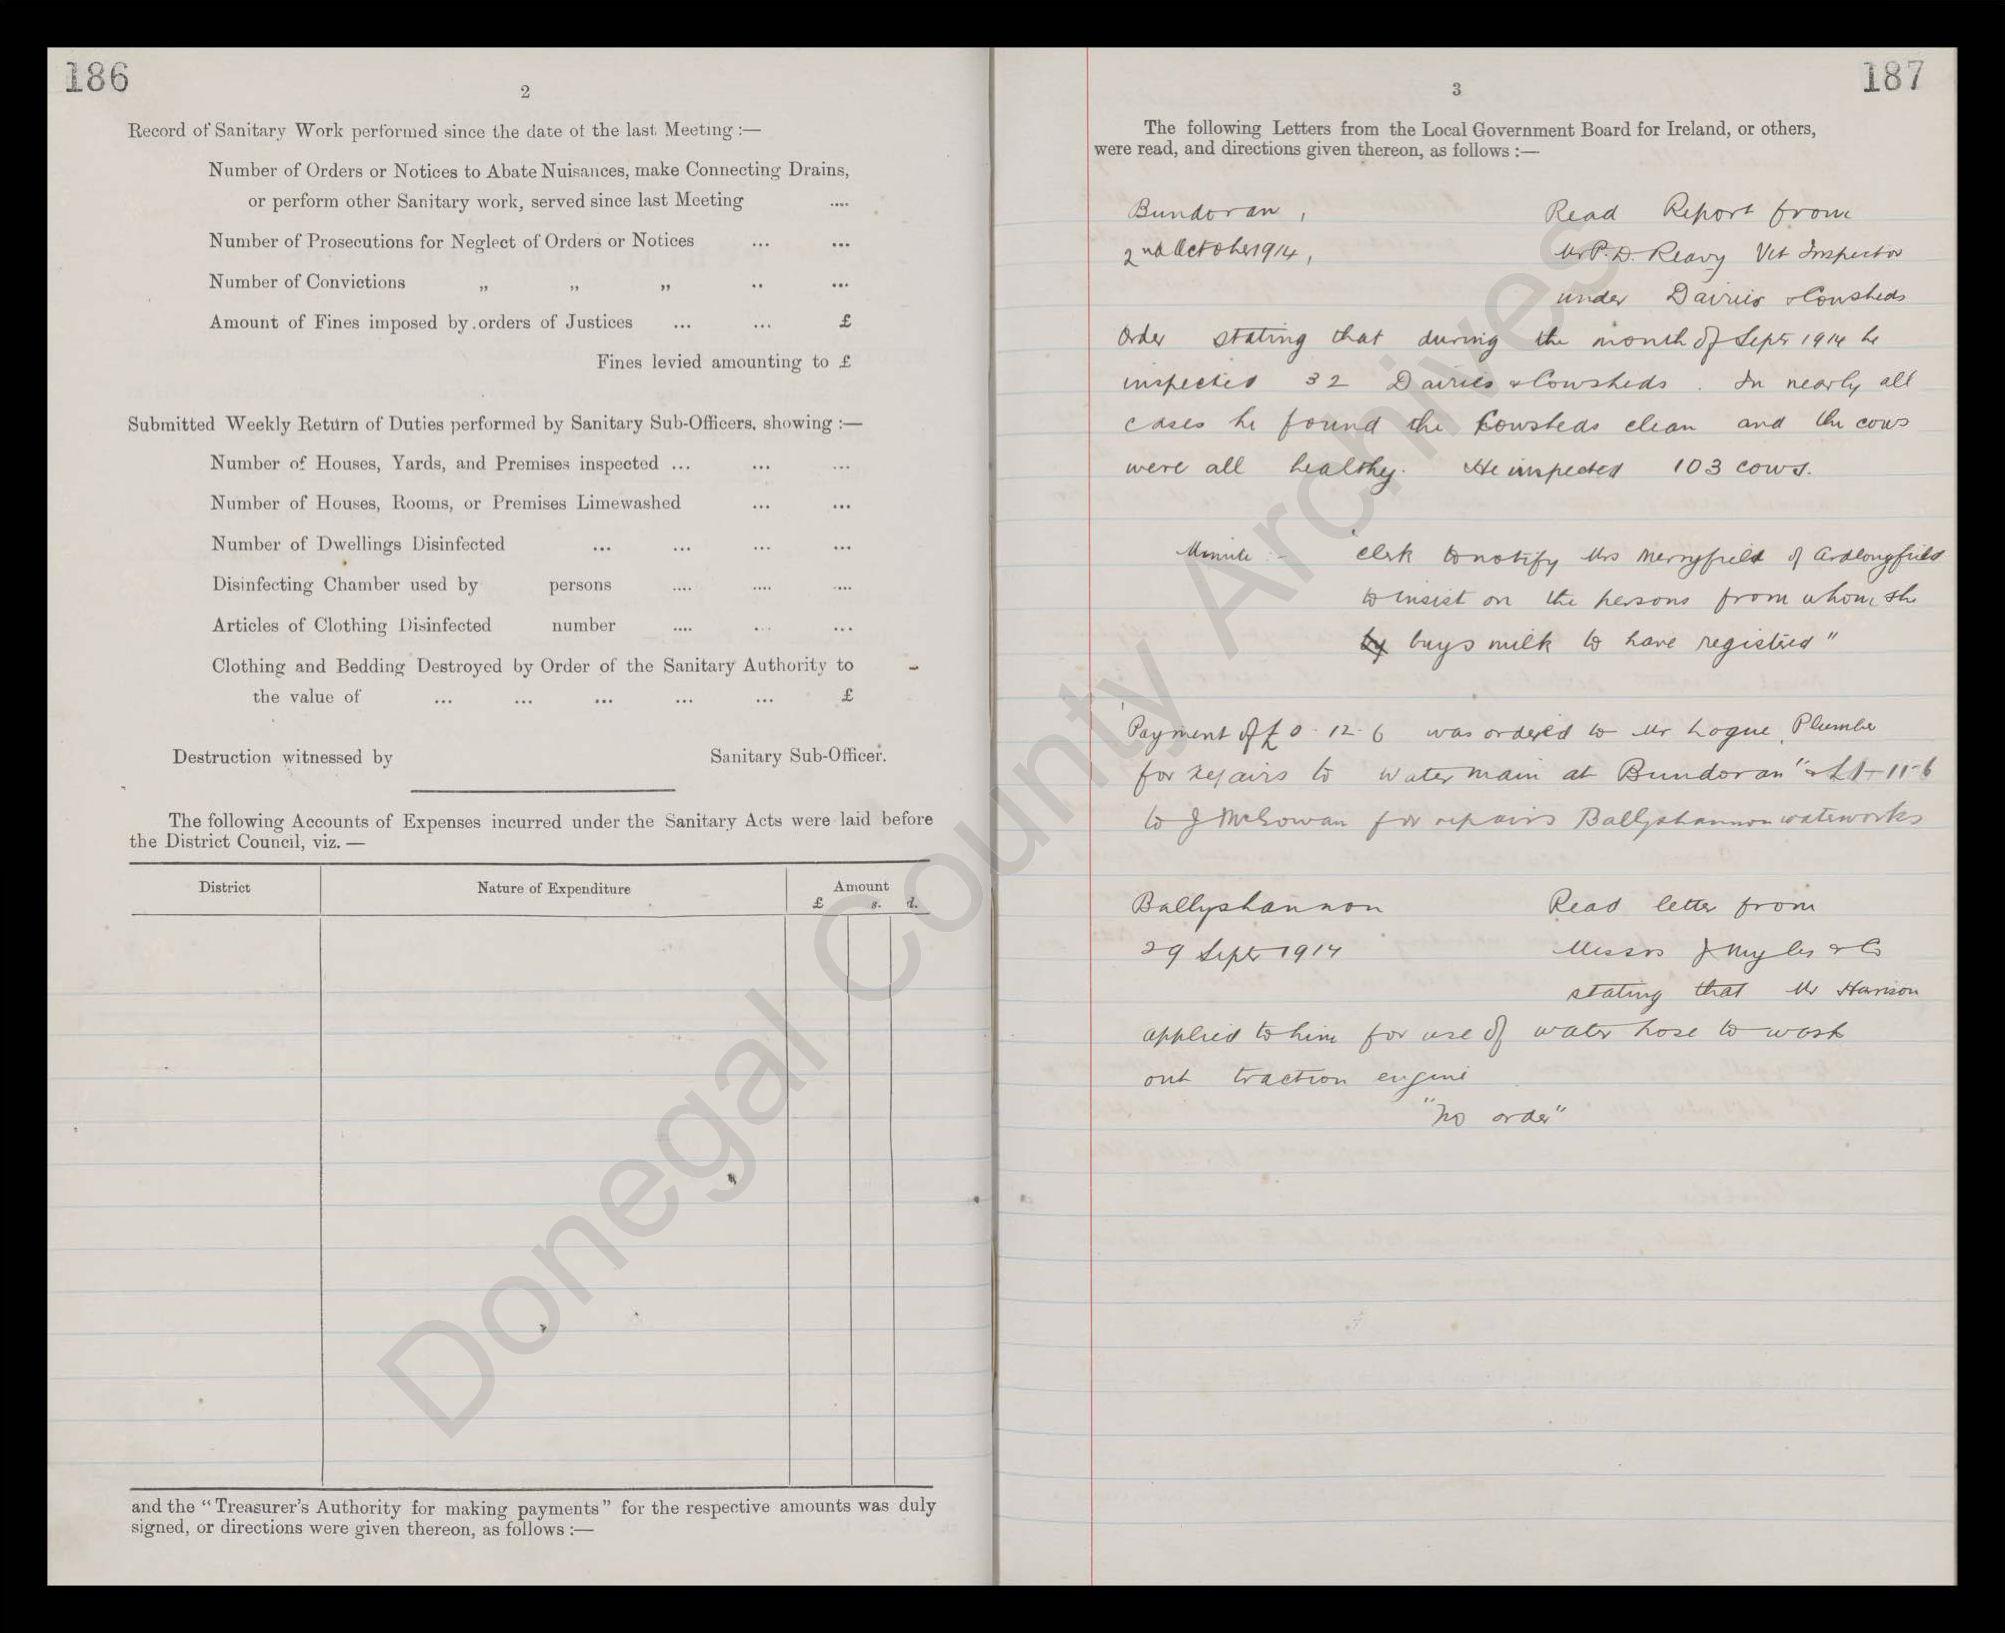 186
2
Record of Sanitary Work performed since the date of the last Meeting :—
Number of Orders or Notices to Abate Nuisances, make Connecting Drains,
or perform other Sanitary work, served since last Meeting ....
Number of Prosecutions for Neglect of Orders or Notices ... ...
Number of Convictions „ „ „ .. ...
Amount of Fines imposed by orders of Justices ... ... £
Fines levied amounting to £
Submitted Weekly Return of Duties performed by Sanitary Sub-Officers, showing :—
Number of Houses, Yards, and Premises inspected ... ... ...
Number of Houses, Rooms, or Premises Limewashed ... ...
Number of Dwellings Disinfected ... ... ... ...
Disinfecting Chamber used by persons .... .... ....
Articles of Clothing Disinfected number .... ... ...
Clothing and Bedding Destroyed by Order of the Sanitary Authority to
the value of ... ... ... ... ... £
Destruction witnessed by Sanitary Sub-Officer.
The following Accounts of Expenses incurred under the Sanitary Acts were laid before
the District Council, viz. —
District Nature of Expenditure Amount
£ s. d.
and the "Treasurer's Authority for making payments" for the respective amounts was duly
signed, or directions were given thereon, as follows :—
187
3
The following Letters from the Local Government Board for Ireland, or others,
were read, and directions given thereon, as follows :—
Bundoran, Read Report from
2nd October 1914, Mr P. D. Reavy Vet Inspector
under Dairies & Cowsheds
Order stating that during the month of Sept 1914 he
inspected 32 Dairies & Cowsheds. In nearly all
cases he found the Cowsheds clean and the cows
were all healthy. He inspected 103 cows.
Minute :- "Clerk to notify Mrs Merryfield of Ardlongfield
to insist on the persons from whom she
by buys milk to have registered"
"Payment of £0-12-6 was ordered to Mr Logue, Plumber
for repairs to water main at Bundoran" & £1-11-6
to J McGowan for repairs Ballyshannon waterworks
Ballyshannon Read letter from
29 Sept 1914 Messrs J Myles & Co
stating that Mr Harrison
applied to him for use of water hose to wash
out traction engine
"No order"
Donegal County Archives